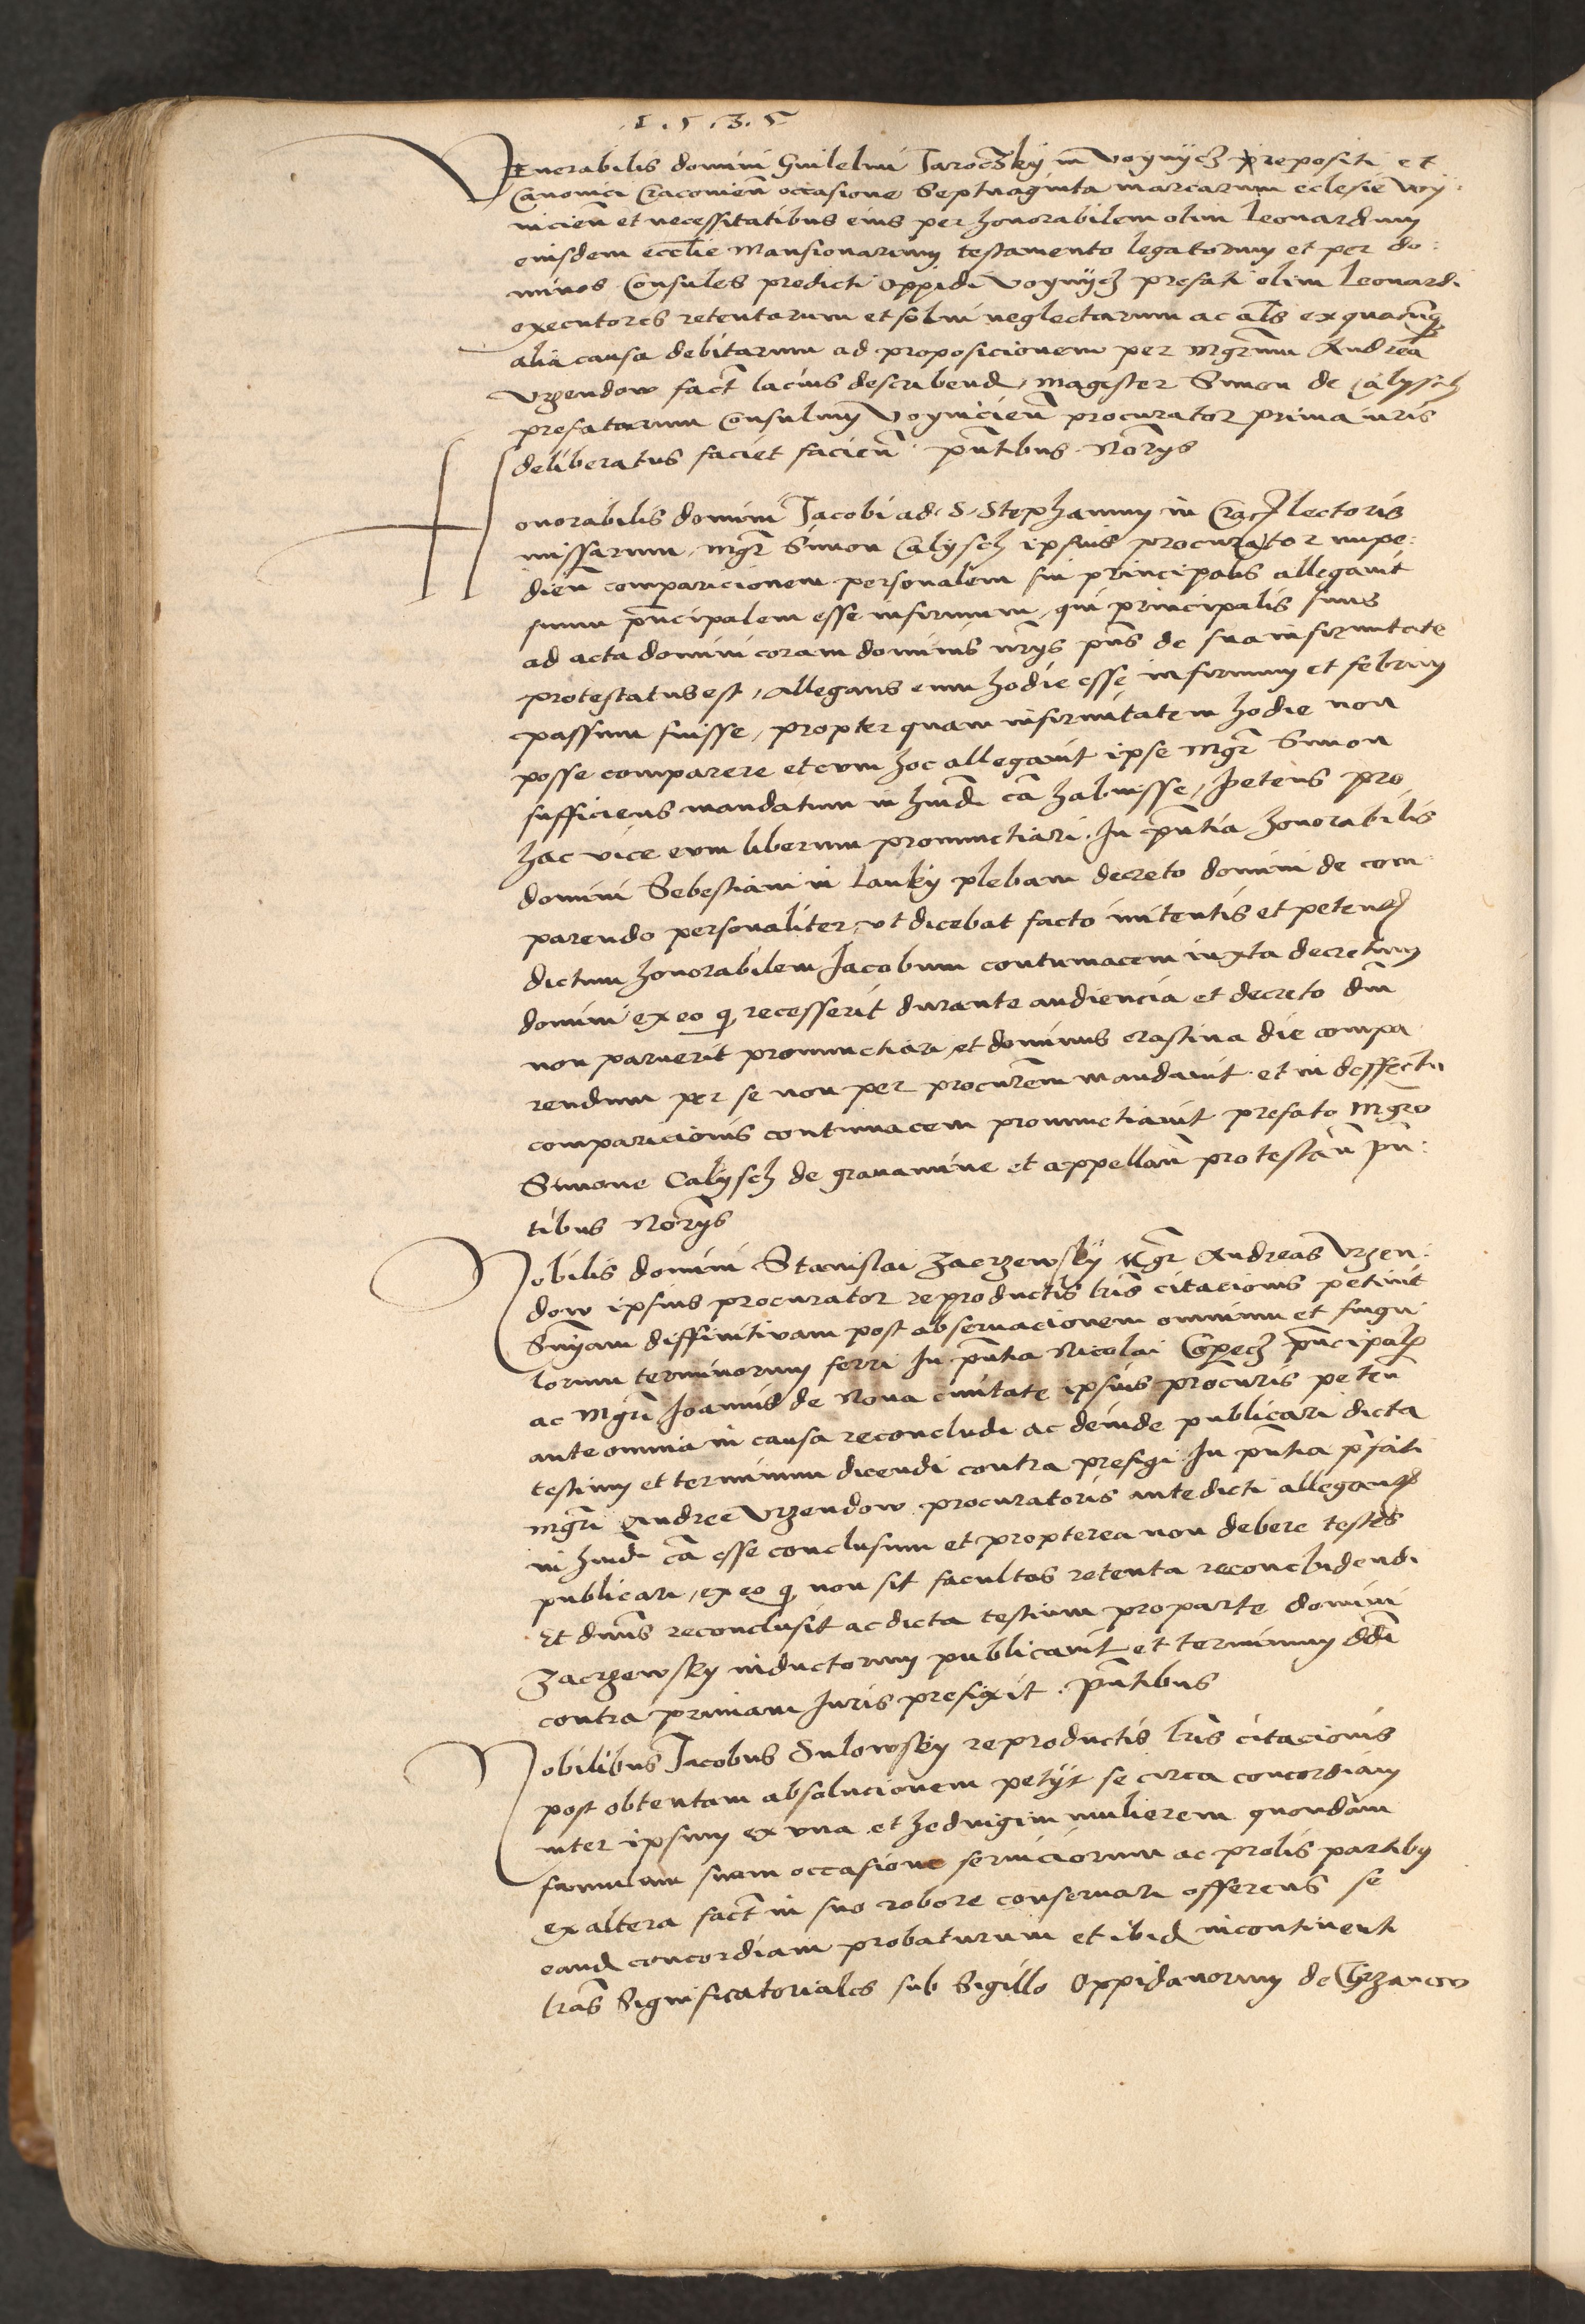 .1.5.3.5
Venerabilis domini Guilelmi Jaroczsky in Voynycz prepositi et
Canonici Cracovien̄ occasione Septuaginta marcarum eclesie Voy:
nicien̄ et necessitatibus eius per honorabilem olim Leonardum
eiusdem ecclīe Mansionarium testamento legatorum et per do:
minos Consules predicti Oppidi Voynycz prefati olim Leonardi
executores retentarum et solui neglectarum ac als̄ ex quacunq̄
alia causa debitarum ad proposicionem per Mgr̄um Andrea
Vrzendow fact̄ lacius describend̄, Magister Simon de Calyssch
prefatorum Consulum Voynicien̄ procurator prima iuris
deliberatus faciet facien̄ . pn̄tibus . Nōrys
Honorabilis domini Jacobi ad . S . Stephanum in Crac̄ lectoris
missarum, Mgr̄ Simon Calysch ipsius procurator impe:
dien̄ comparicionem personalem sui principalis allegauit
suum pn̄cipalem esse infirmum, qui principalis suus
ad acta domini coram dominis nr̄ys pn̄s de sua infirmitate
protestatus est, Allegans eum hodie esse infirmum et febrim
passum fuisse, propter quam infirmitatem hodie non
posse comparere et cum hoc allegauit ipse Mgr̄ Simon
sufficiens mandatum in hm̄di cā habuisse, petens pro
hac vice eum liberum pronunctiari . In pn̄tia honorabilis
domini Sebestiani in Lanky plebani decreto domini de com
parendo personaliter, vt dicebat facto innitentis et peten̄
dictum honorabilem Jacobum contumacem iuxta decretum
domini ex eo q̄ recesserit durante audiencia et decreto dn̄i
non paruerit pronunctiari, et dominus crastina die compa
rendum per se non per procur̄em mandauit . et in deffectu
comparicionis contumacem pronunctiauit prefato Mgr̄o
Simone Calysch de grauamine et appellan̄ protestan̄ pn̄:
tibus Norys
Nobilis domini Stanislai Zaczewsky Mgr̄ Andreas Vrzen:
dow ipsius procurator reproductis lr̄is citacionis petiuit
Sn̄iam diffinitiuam post obseruacionem omnium et singu
lorum terminorum ferri In pn̄tia Nicolai pn̄cipal̄
ac Mgr̄i Joannis de Noua ciuitate ipsius procur̄is peten̄
ante omnia in causa reconcludi ac deinde publicari dicta
testium et terminum dicendi contra presigi . In pn̄tia pr̄fati
mgr̄i Andree Vrzendow procuratoris antedicti allegan̄
in hm̄di cā esse conclusum et propterea non debere testes
publicari, ex eo q̄ non sit facultas retenta reconcludendi
Et dn̄us reconclusit ac dicta testium pro parte domini
Zaczewsky inductorum publicauit et terminum dd̄i
contra primam Iuris prefixit . pn̄tibus
Nobilibus Jacobus Sulowsky reproductis lr̄is citacionis
post obtentam absolucionem petyt se circa concordiam
inter ipsum ex vna et hedvigim mulierem quondam
famulam suam occasione seruiciorum ac prolis partibus
ex altera fact̄ in suo robore conseruari offerens se
eand̄ concordiam probaturum et ibid̄ incontinenti
lr̄as Significatoriales sub Sigillo Oppidanorum de Chrzanow